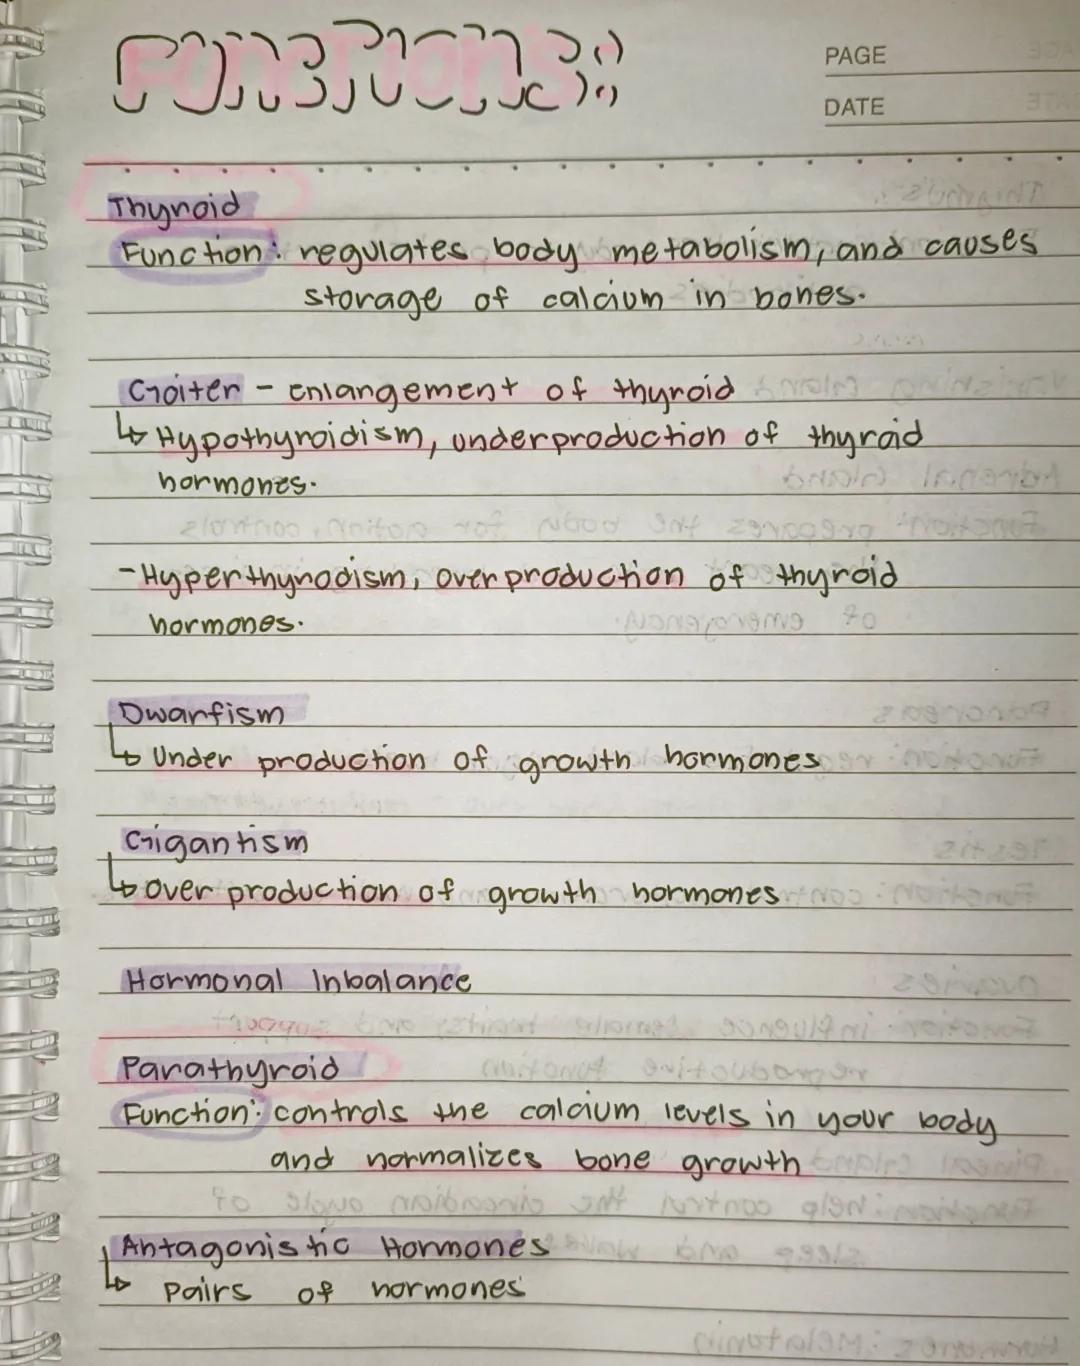 Functions:
PAGE
DATE
Thyroid
Function: regulates body metabolism, and causes
storage of calcium in bones.
Goiter - enlangement of thyroid
↳ Hypothyroidism, underproduction of thyroid
hormones.
- Hyperthyrodism, overproduction of thyroid
hormones.
Dwarfism
↳ Under production of growth hormones
Gigantism
↳ over production of growth hormones
Hormonal Inbalance
Parathyroid
Function: controls the calcium levels in your body
and normalizes bone growth
Antagonistic Hormones
↳ Pairs of hormones